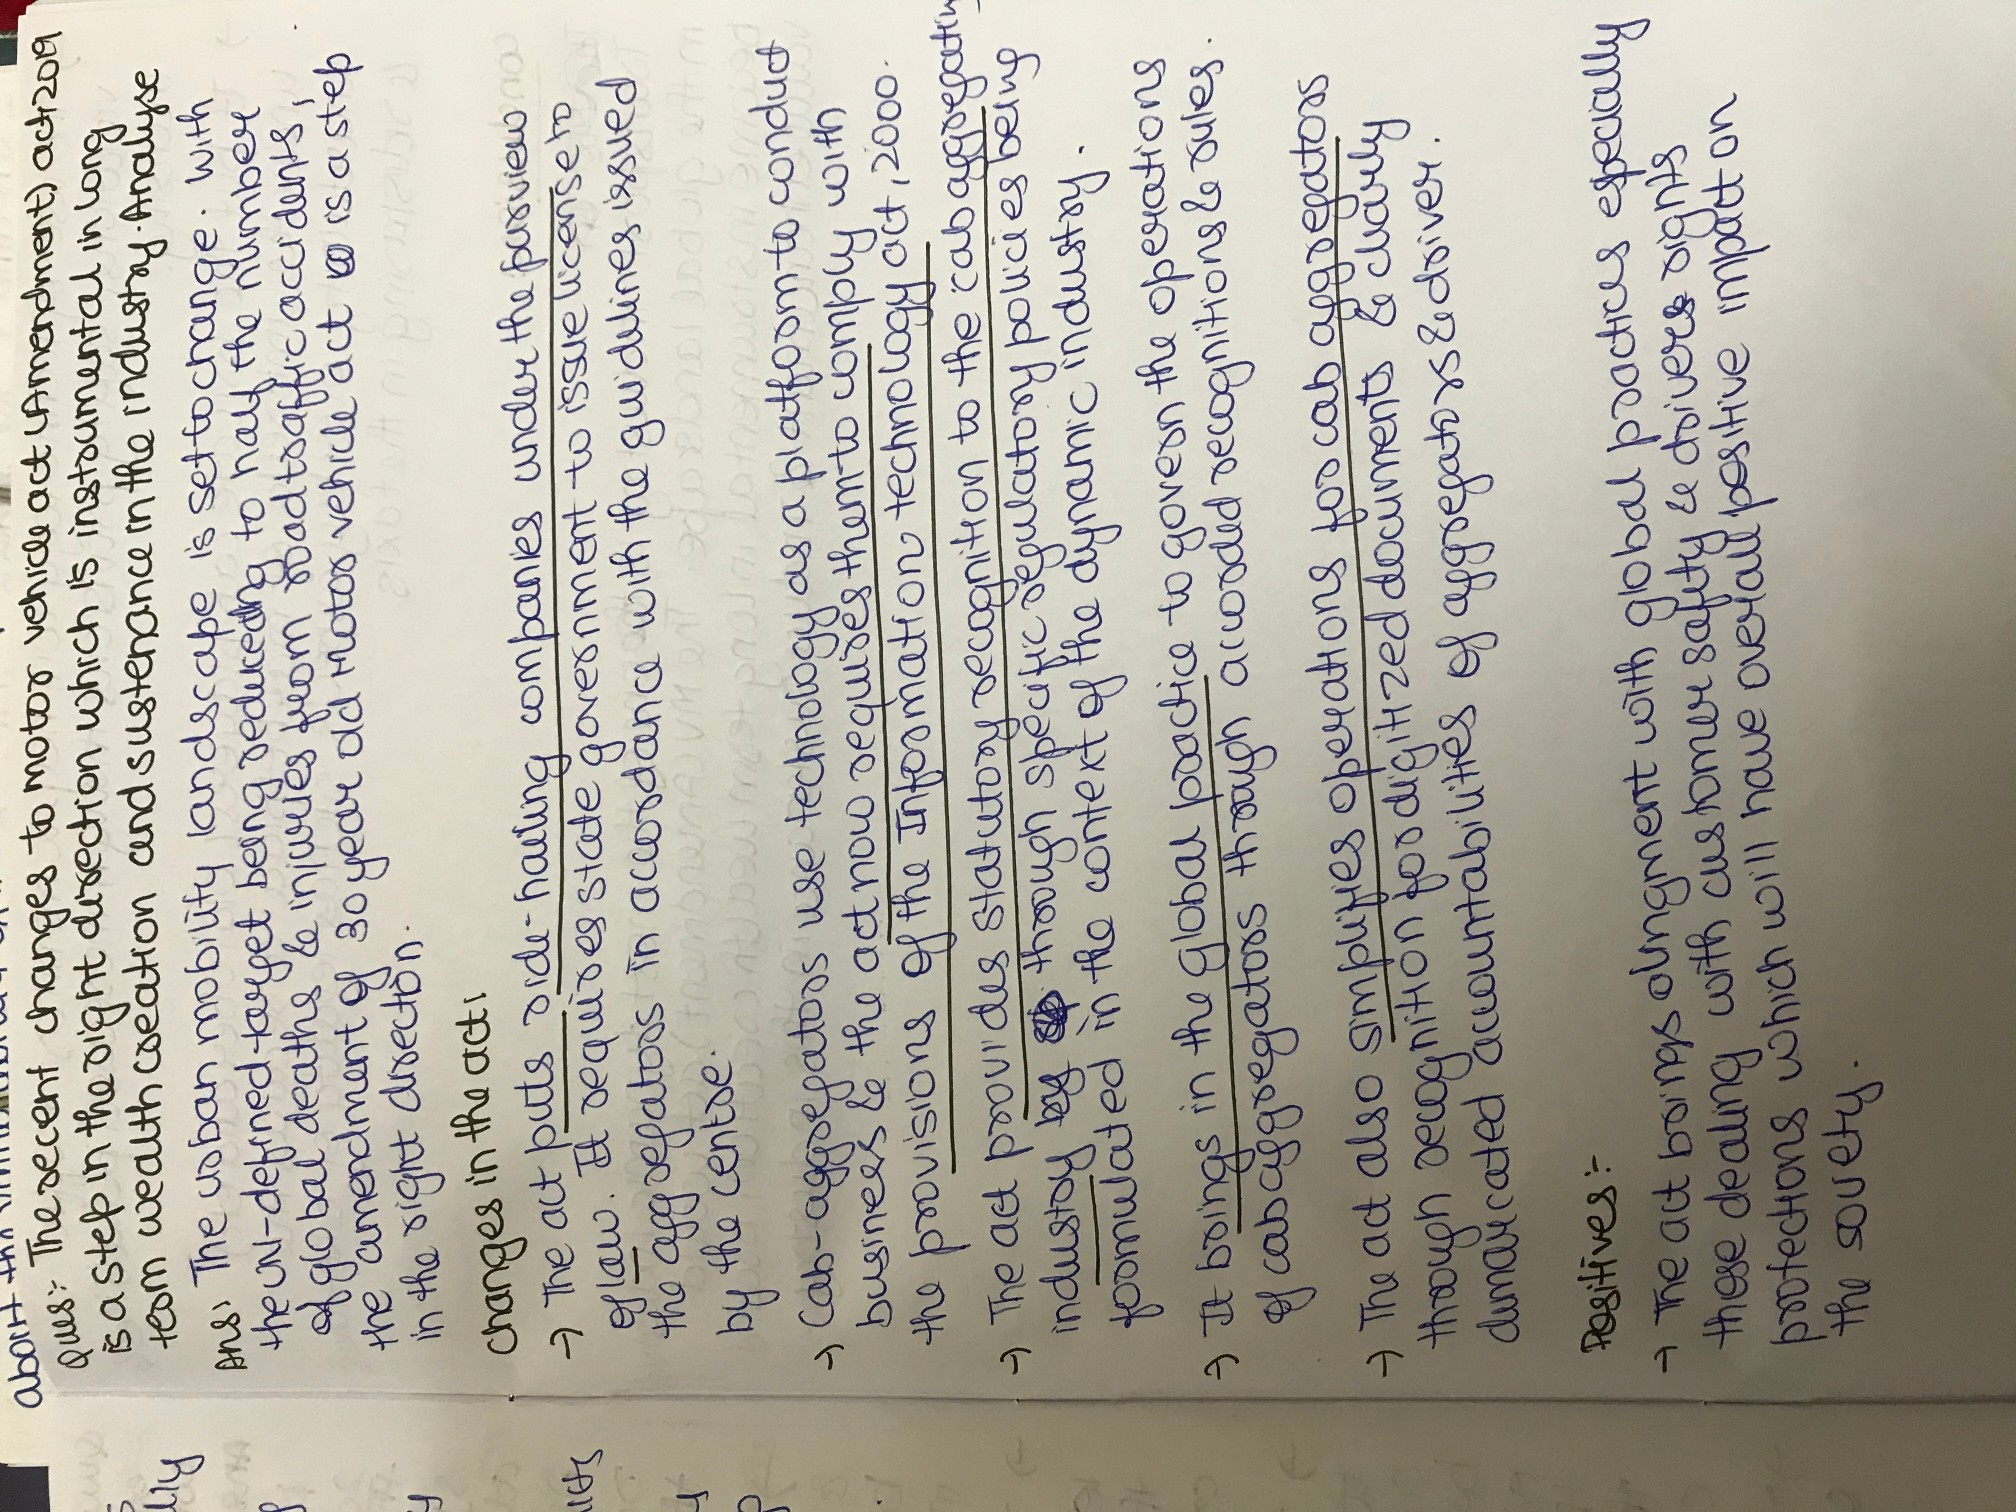 Ques:- The recent changes to motor vehicle act (Amendment) act 2019
is a step in the right direction which is instrumental in long
term wealth creation and sustenance in the industry. Analyse
Ans: The urban mobility landscape is set to change. With
the UN-defined target being reduceding to half the number
of global deaths & injuries from road traffic accidents,
the amendment of 30 year old Motor vehicle act is a step
in the right direction.
Changes in the act:
→ The act puts ride-hailing companies under the purview
of law. It requires state government to issue license to
the aggregators in accordance with the guidelines issued
by the centre.
→ Cab-aggregators use technology as a platform to conduct
business & the act now requires them to comply with
the provisions of the Information technology act, 2000.
→ The act provides statutory recognition to the cab aggregating
industry through specific regulatory policies being
formulated in the context of the dynamic industry.
→ It brings in the global practice to govern the operations
of cab aggregators through accorded recognitions & rules.
→ The act also simplifies operations for cab aggregators
through recognition for digitized documents & clearly
demarcated accountabilities of aggregators & driver.
Positives:-
→ The act brings alingment with global practices especially
these dealing with customer safety & drivers rights
protections which will have overall positive impact on
the society.